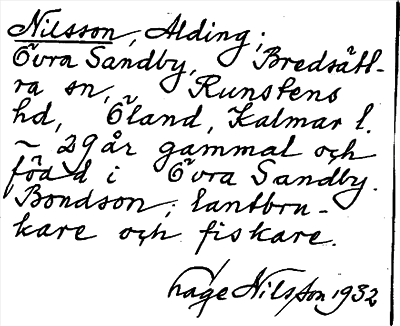 Nilsson, Alding;
Övra Sandby, Bredsätt-
ra sn, Runstens
hd, Öland, Kalmar l.
~ 29 år gammal och
född i Övra Sandby.
Bondson; lantbru-
kare och fiskare.
Nilsson 1932